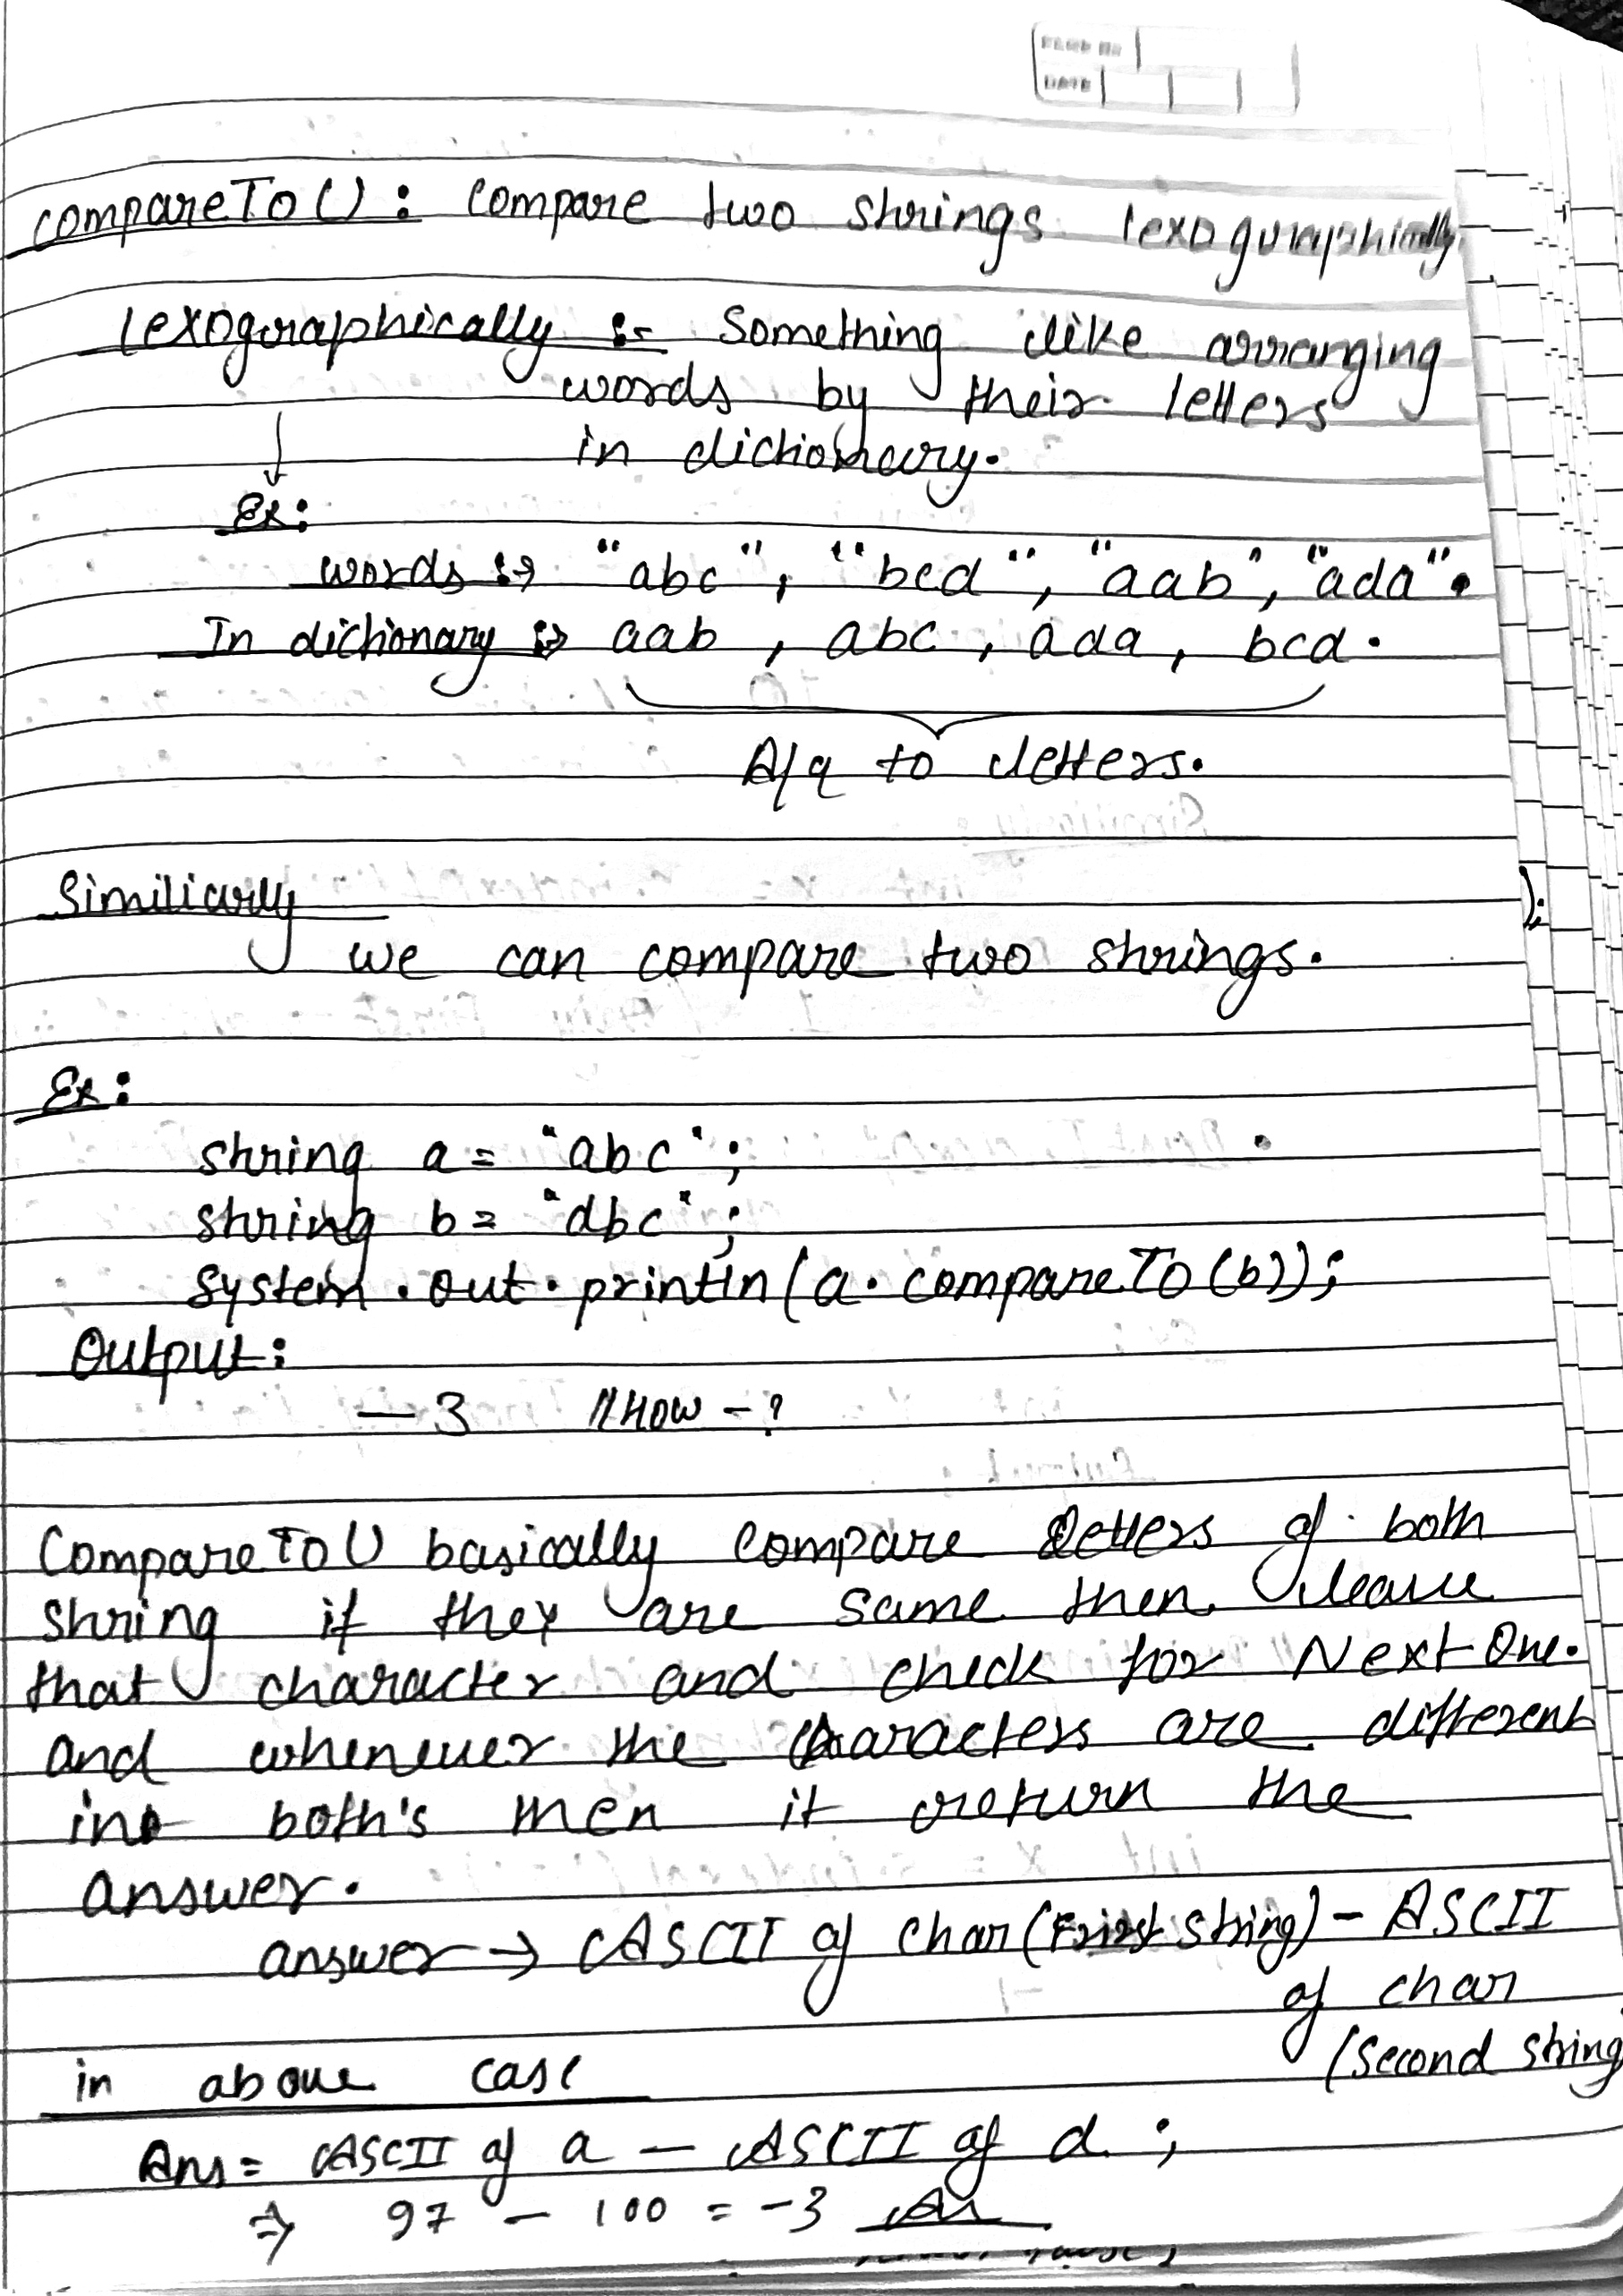 PAGE NO
DATE
compareTo(): Compare two strings lexographically
lexographically :- Something like arranging
words by their letters
in dictionary.
Ex:
words :→ "abc", "bcd", "aab", "ada".
In dictionary :→ aab, abc, ada, bcd.
A/q to letters.
Similiarly
we can compare two strings.
);
Ex:
string a = "abc";
string b = "dbc";
System.out.println(a.compareTo(b));
Output:
-3 //How-?
CompareTo() basically compare letters of both
string if they are same then leave
that character and check for Next One.
and whenever the characters are different
in both's then it return the
answer.
answer → ASCII of char (First string) - ASCII
of char
(Second string
in above case
Ans = ASCII of a - ASCII of d ;
⇒ 97 - 100 = -3 Ans